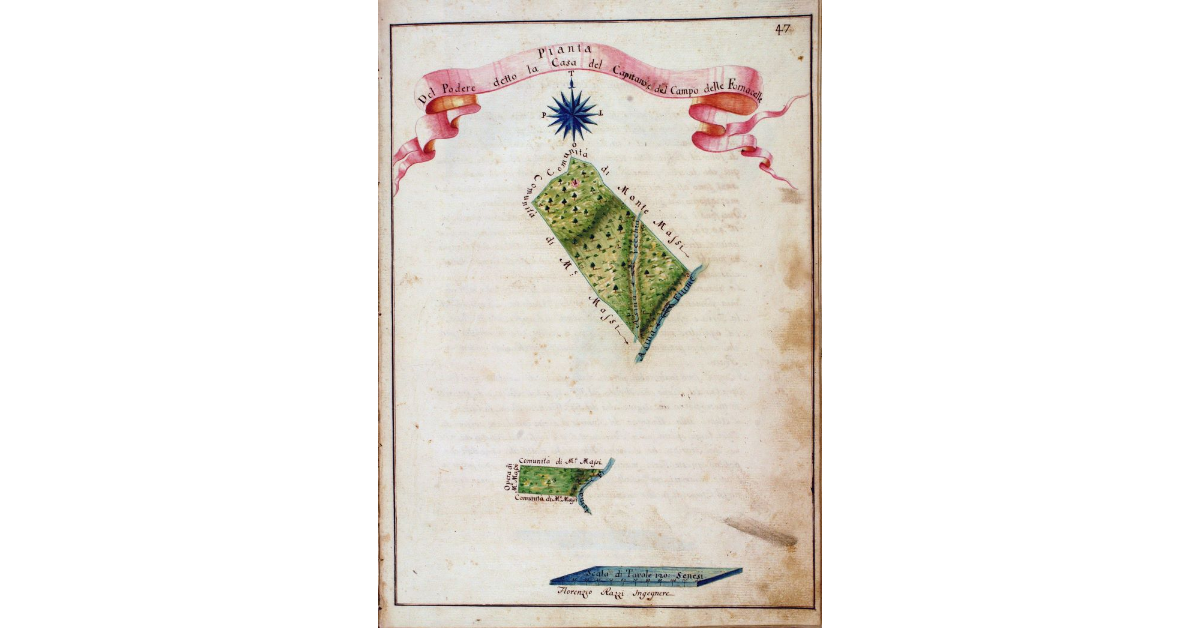 47
Pianta
Del Podere detto la Casa del Capitano, e del Campo delle Fornacelle
T
P L
O
Comunità di Monte Massi
Comunità di M.e Massi
Vecchia
Fiume
Comunità di M.e Massi
Opera di
M.e Massi
Comunità di M.e Massi
Scala di Tavole 120 Senesi
Florenzio Razzi Ingegnere